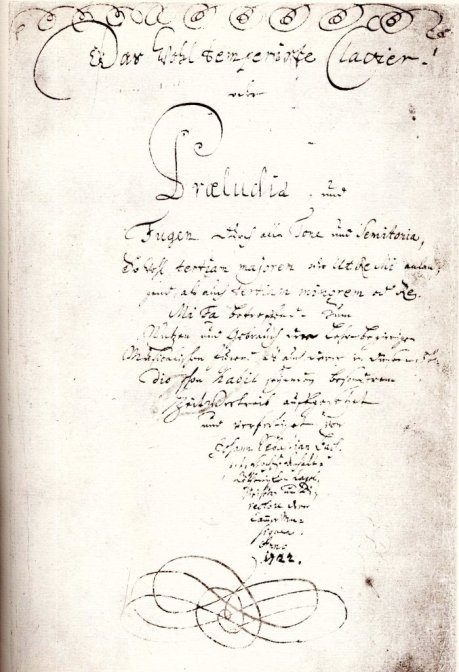 Das Wohl temperirte Clavier.
oder
Præludia, und
Fugen durch alle Tone und Semitonia,
So wohl tertiam majorem oder Ut Re Mi anlan-
gend, als auch tertiam minorem oder Re
Mi Fa betreffend. Zum
Nutzen und Gebrauch der Lehrbegierigen
Musicalischen Jugend, als auch derer in diesem
die schon habil seyenden besonderem
Zeit Vertreib auffgesetzet
und verfertiget von
Johann Sebastian Bach.
p. t. Hochfürstlich
Cöthenischen Capel-
Meistern und Di-
rectore derer
Cammer Mu-
siquen.
Anno
1722.